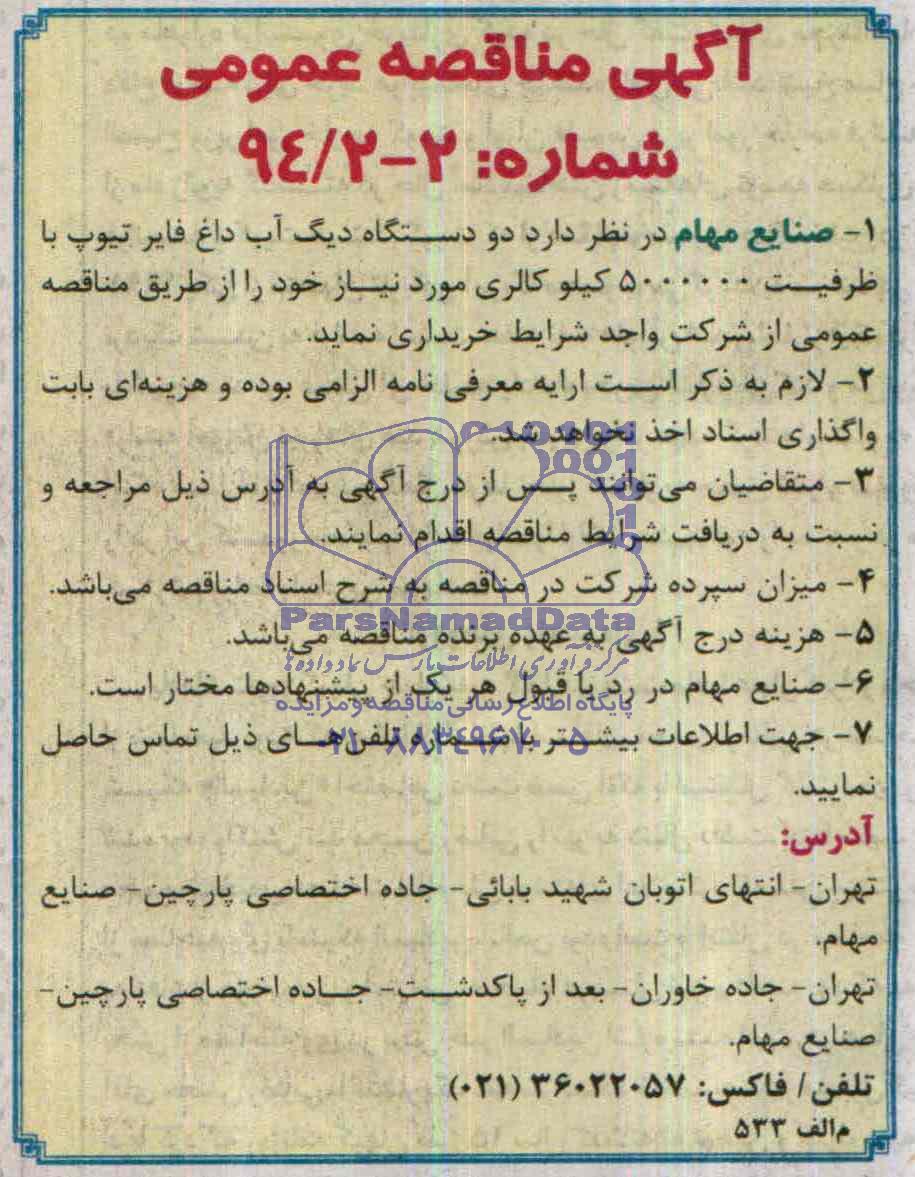 آگهی مناقصه عمومی
شماره: ۲-۹٤/۲
۱- صنایع مهام در نظر دارد دو دستگاه دیگ آب داغ فایر تیوپ با
ظرفیت ۵۰۰۰۰۰۰ کیلو کالری مورد نیاز خود را از طریق مناقصه
عمومی از شرکت واجد شرایط خریداری نماید.
۲- لازم به ذکر است ارایه معرفی نامه الزامی بوده و هزینه‌ای بابت
واگذاری اسناد اخذ نخواهد شد.
۳- متقاضیان می‌توانند پس از درج آگهی به آدرس ذیل مراجعه و
نسبت به دریافت شرایط مناقصه اقدام نمایند.
۴- میزان سپرده شرکت در مناقصه به شرح اسناد مناقصه می‌باشد.
ParsNamadData
۵- هزینه درج آگهی به عهده برنده مناقصه می‌باشد.
مرکز فرآوری اطلاعات پارس نماد داده‌ها
۶- صنایع مهام در رد یا قبول هر یک از پیشنهادها مختار است.
پایگاه اطلاع رسانی مناقصه و مزایده
۷- جهت اطلاعات بیشتر با شماره تلفن‌های ذیل تماس حاصل
۰۲۱-۸۸۳۴۹۶۷۰-۵
نمایید.
آدرس:
تهران- انتهای اتوبان شهید بابائی- جاده اختصاصی پارچین- صنایع
مهام.
تهران- جاده خاوران- بعد از پاکدشت- جاده اختصاصی پارچین-
صنایع مهام.
تلفن/ فاکس: ۳۶۰۲۲۰۵۷ (۰۲۱)
م‌الف ۵۳۳